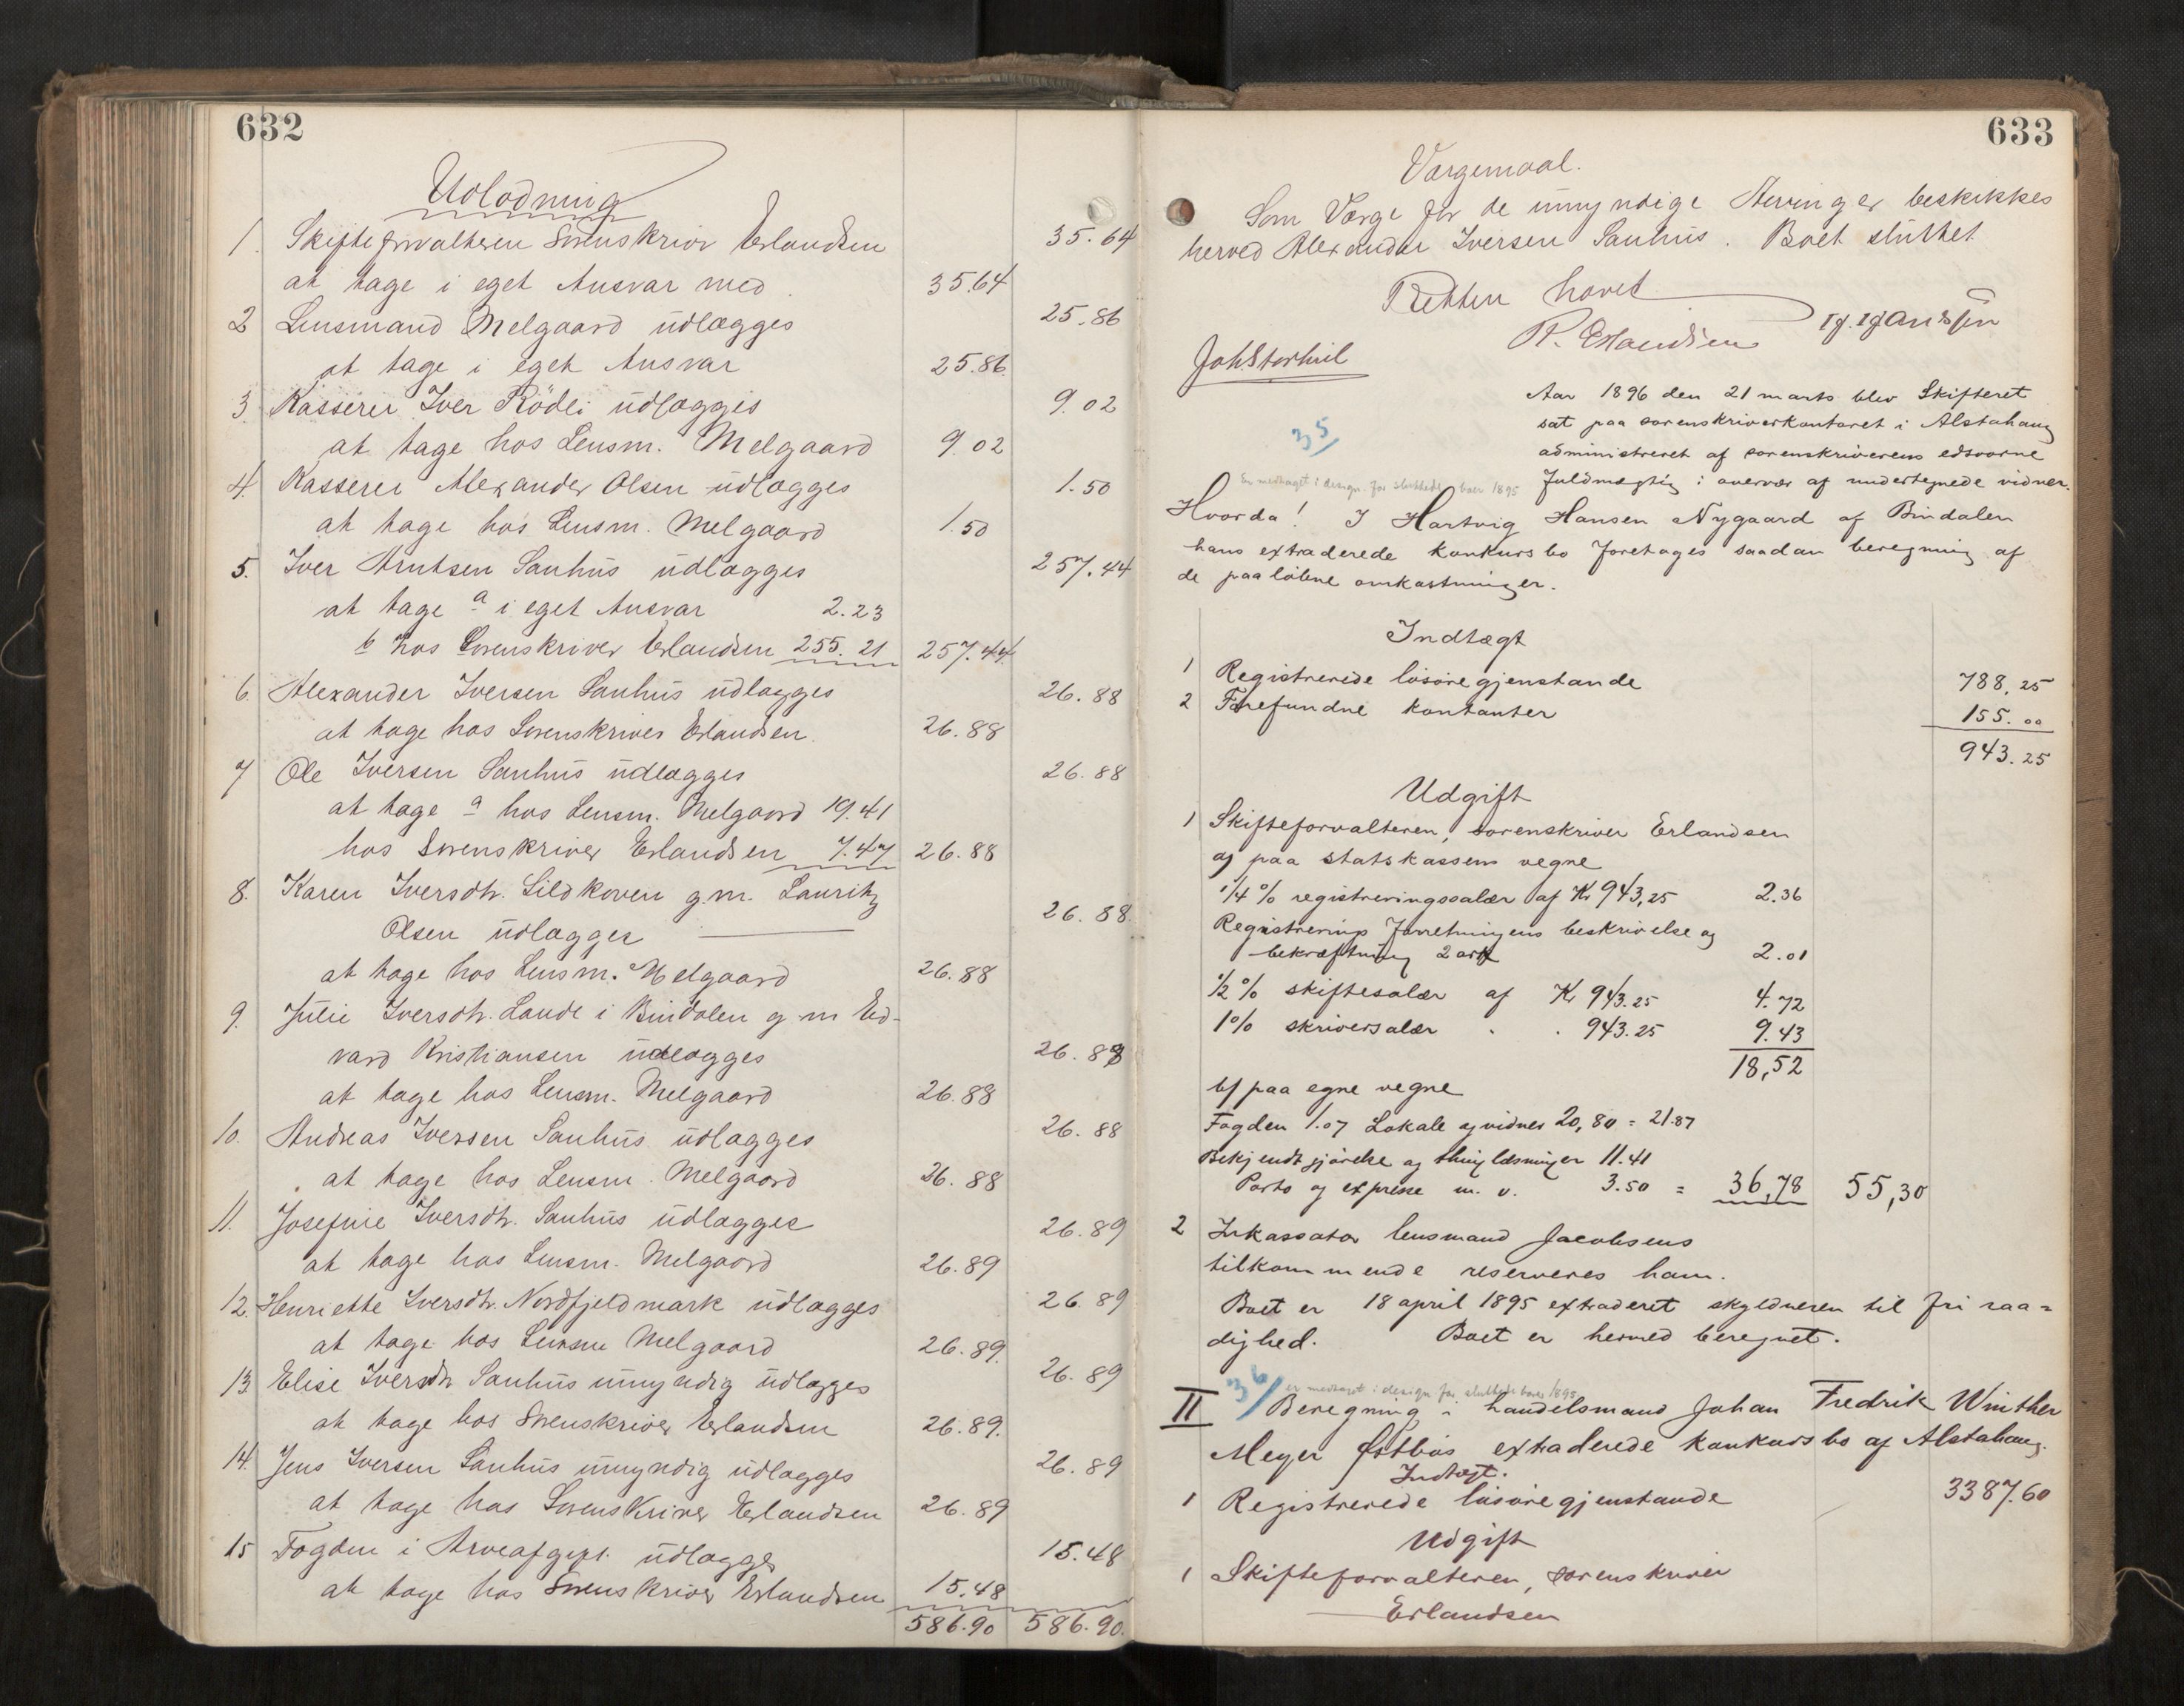 632
Udlodning
1. Skifteforvalteren Sorenskriver Erlandsen 35.64
at tage i eget Ansvar med 35.64
2 Lensmand Melgaard udlægges 25.86
at tage i eget Ansvar 25.86
3. Kasserer Iver Rödli udlægges 9.02
at tage hos Lensm. Melgaard 9.02
4. Kasserer Alexander Olsen udlægges 1.50
at tage hos Lensm. Melgaard 1.50
5. Iver Arntsen Sauhus udlægges 257.44
at tage a i eget Ansvar 2.23
b hos Sorenskriver Erlandsen 255.21 257.44
6. Alexander Iversen Sauhus udlægges 26.88
at tage hos Sorenskriver Erlandsen 26.88
7 Ole Iversen Sauhus udlægges 26.88
at tage a hos Lensm. Melgaard 19.41
hos Sorenskriver Erlandsen 7.47 26.88
8. Karen Iversdtr. Sildkoven g.m. Lauritz
Olsen udlægges 26.88
at tage hos Lensm. Melgaard 26.88
9. Julie Iversdtr. Lande i Bindalen g.m Ed-
vard Kristiansen udlægges 26.88
at tage hos Lensm. Melgaard 26.88
10. Andreas Iversen Sauhus udlægges 26.88
at tage hos Lensm. Melgaard 26.88
11. Josefine Iversdtr. Sauhus udlægges 26.89
at tage hos Lensm. Melgaard 26.89
12. Henriette Iversdtr. Nordfjeldmark udlægges 26.89
at tage hos Lensm Melgaard 26.89.
13. Elise Iversdtr Sauhus umyndig udlægges 26.89
at tage hos Sorenskriver Erlandsen 26.89.
14. Jens Iversen Sauhus umyndig udlægges 26.89
at tage hos Sorenskriver Erlandsen 26.89
15 Fogden i Arveafgift udlægges 15.48
at tage hos Sorenskriver Erlandsen 15.48
586.90 586.90.
633
Værgemaal.
Som Værge for de umyndige Arvinger beskikkes
herved Alexander Iversen Sauhus. Boet sluttet
Retten hævet
R. Erlandsen
Joh Storhil
Aar 1896 den 21 marts blev Skifteret
sat paa sorenskriverkontoret i Alstahaug
administreret af sorenskriverens edsvorne
35
Er medtaget i design. for sluttede boer 1895
fuldmægtig i overvær af undertegnede vidner.
Hvorda! I Hartvig Hansen Nygaard af Bindalen
hans extraderede konkursbo foretages saadan beregning af
de paaløbne omkostninger.
Indtægt
1 Registrerede løsøregjenstande 788,25
2 Forefundne kontanter 155.00
943.25
Udgift
1 Skifteforvalteren, sorenskriver Erlandsen
a/ paa statskassens vegne
1/4 % registreringssalær af Kr 943,25 2.36
Registrerings forretningens beskrivelse og
bekræftning 2 ark 2.01
1/2 % skiftesalær af Kr 943.25 4.72
1 % skriversalær " " 943.25 9.43
18,52
b/ paa egne vegne
Fogden 1.07 Lokale og vidner 20,80 = 21.87
Bekjendtgjørelse og thinglæsninger 11.41
Porto og expresse m. v. 3.50 = 36,78 55,30
2 Inkassator lensmand Jacobsens
tilkommende reserveres ham.
Boet er 18 april 1895 extraderet skyldneren til fri raa=
dighed. Boet er hermed beregnet.
36/ er medtaget i design for sluttede boer 1895
II Beregning i handelsmand Johan Fredrik Winther
Meyer Østbøs extraderede konkursbo af Alstahaug.
Indtægt.
1 Registrerede løsøregjenstande 3387.60
Udgift
1 Skifteforvalteren, sorenskriver
Erlandsen